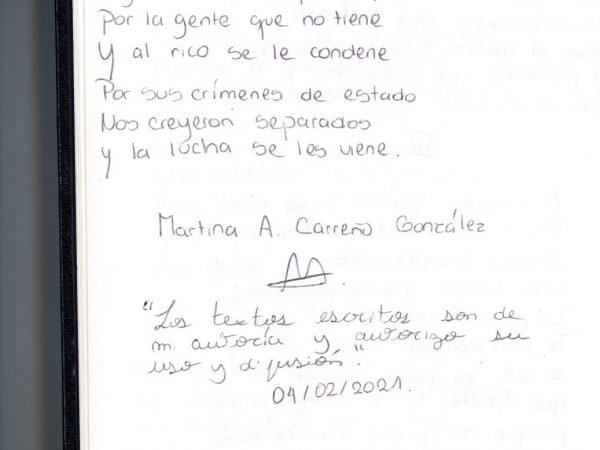 Por la gente que no tiene
Y al rico se le condene
Por sus crímenes de estado
Nos creyeron separados
y la lucha se les viene.
Martina A. Carreño González
"Los textos escritos son de
mi autoría y autorizo su
uso y difusión".
04/02/2021.